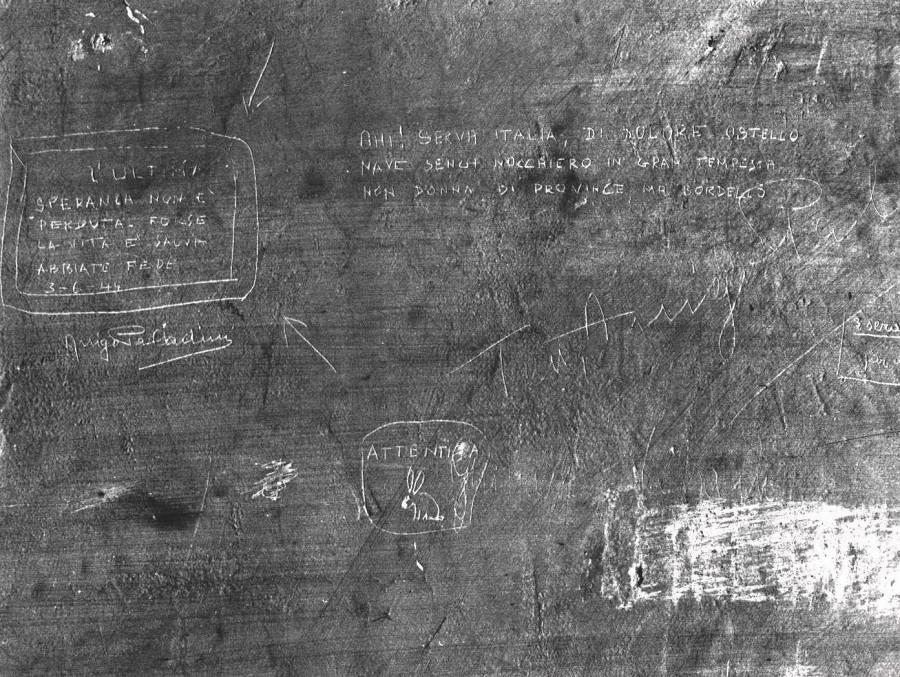 L'ULTIMA
SPERANZA NON È
PERDUTA. FORSE
LA VITA E SALVA
ABBIATE FEDE
3-6-44
Arrigo Palladini
AHI! SERVA ITALIA, DI DOLORE OSTELLO
NAVE SENZA NOCCHIERO IN GRAN TEMPESTA
NON DONNA DI PROVINCE MA BORDELLO
ATTENTI A